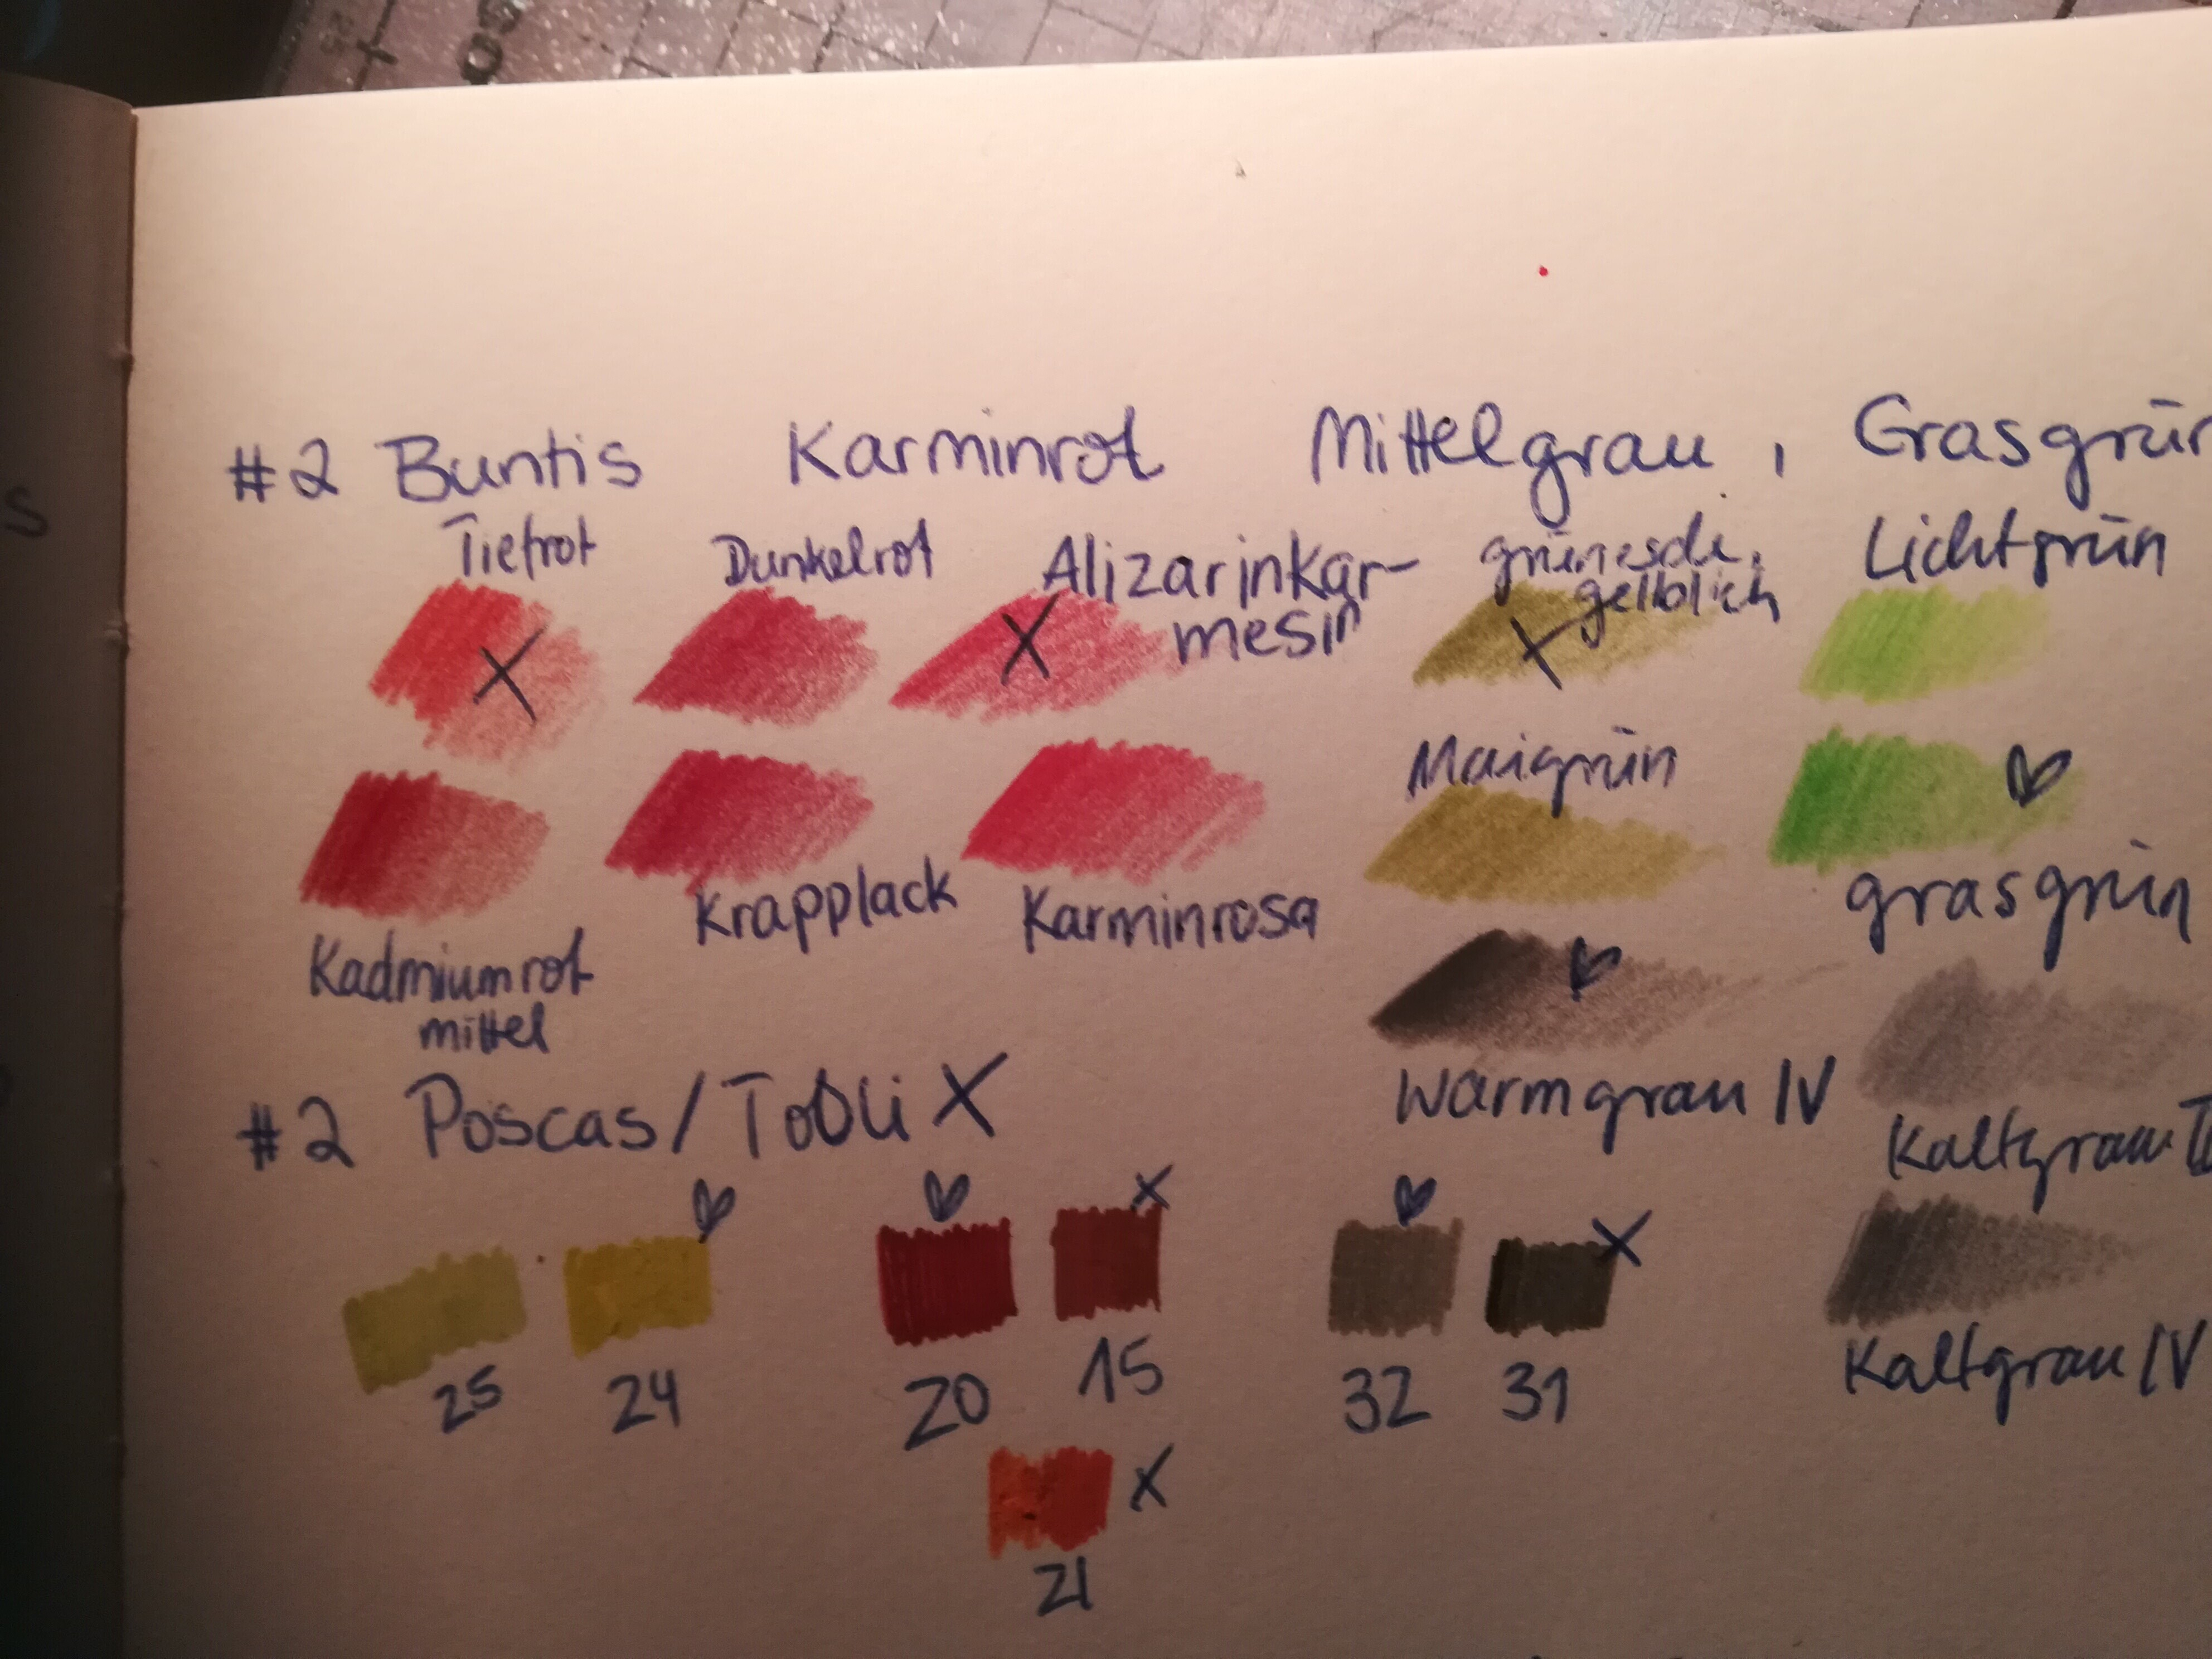 #2 Buntis Karminrot Mittelgrau, Grasgrün
Tiefrot Dunkelrot Alizarinkar-
mesin
grünerde,
gelblich
Lichtgrün
X X X
Maigrün
♥
Krapplack Karminrosa grasgrün
Kadmiumrot
mittel
♥
Warmgrau IV
Kaltgrau
#2 Poscas/ X
♥ ♥ X ♥ X
25 24 20 15 32 31
Kaltgrau IV
X
21